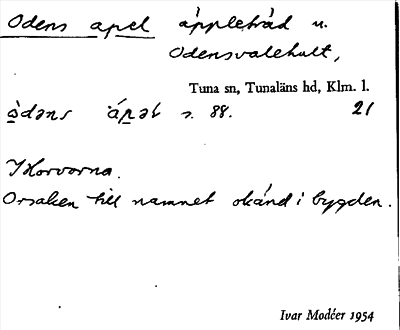 Odens apel äppleträd n.
Odensvalehult,
Tuna sn, Tunaläns hd, Klm. l.
s. 88. 21
Orsaken till namnet okänd i bygden.
Ivar Modéer 1954